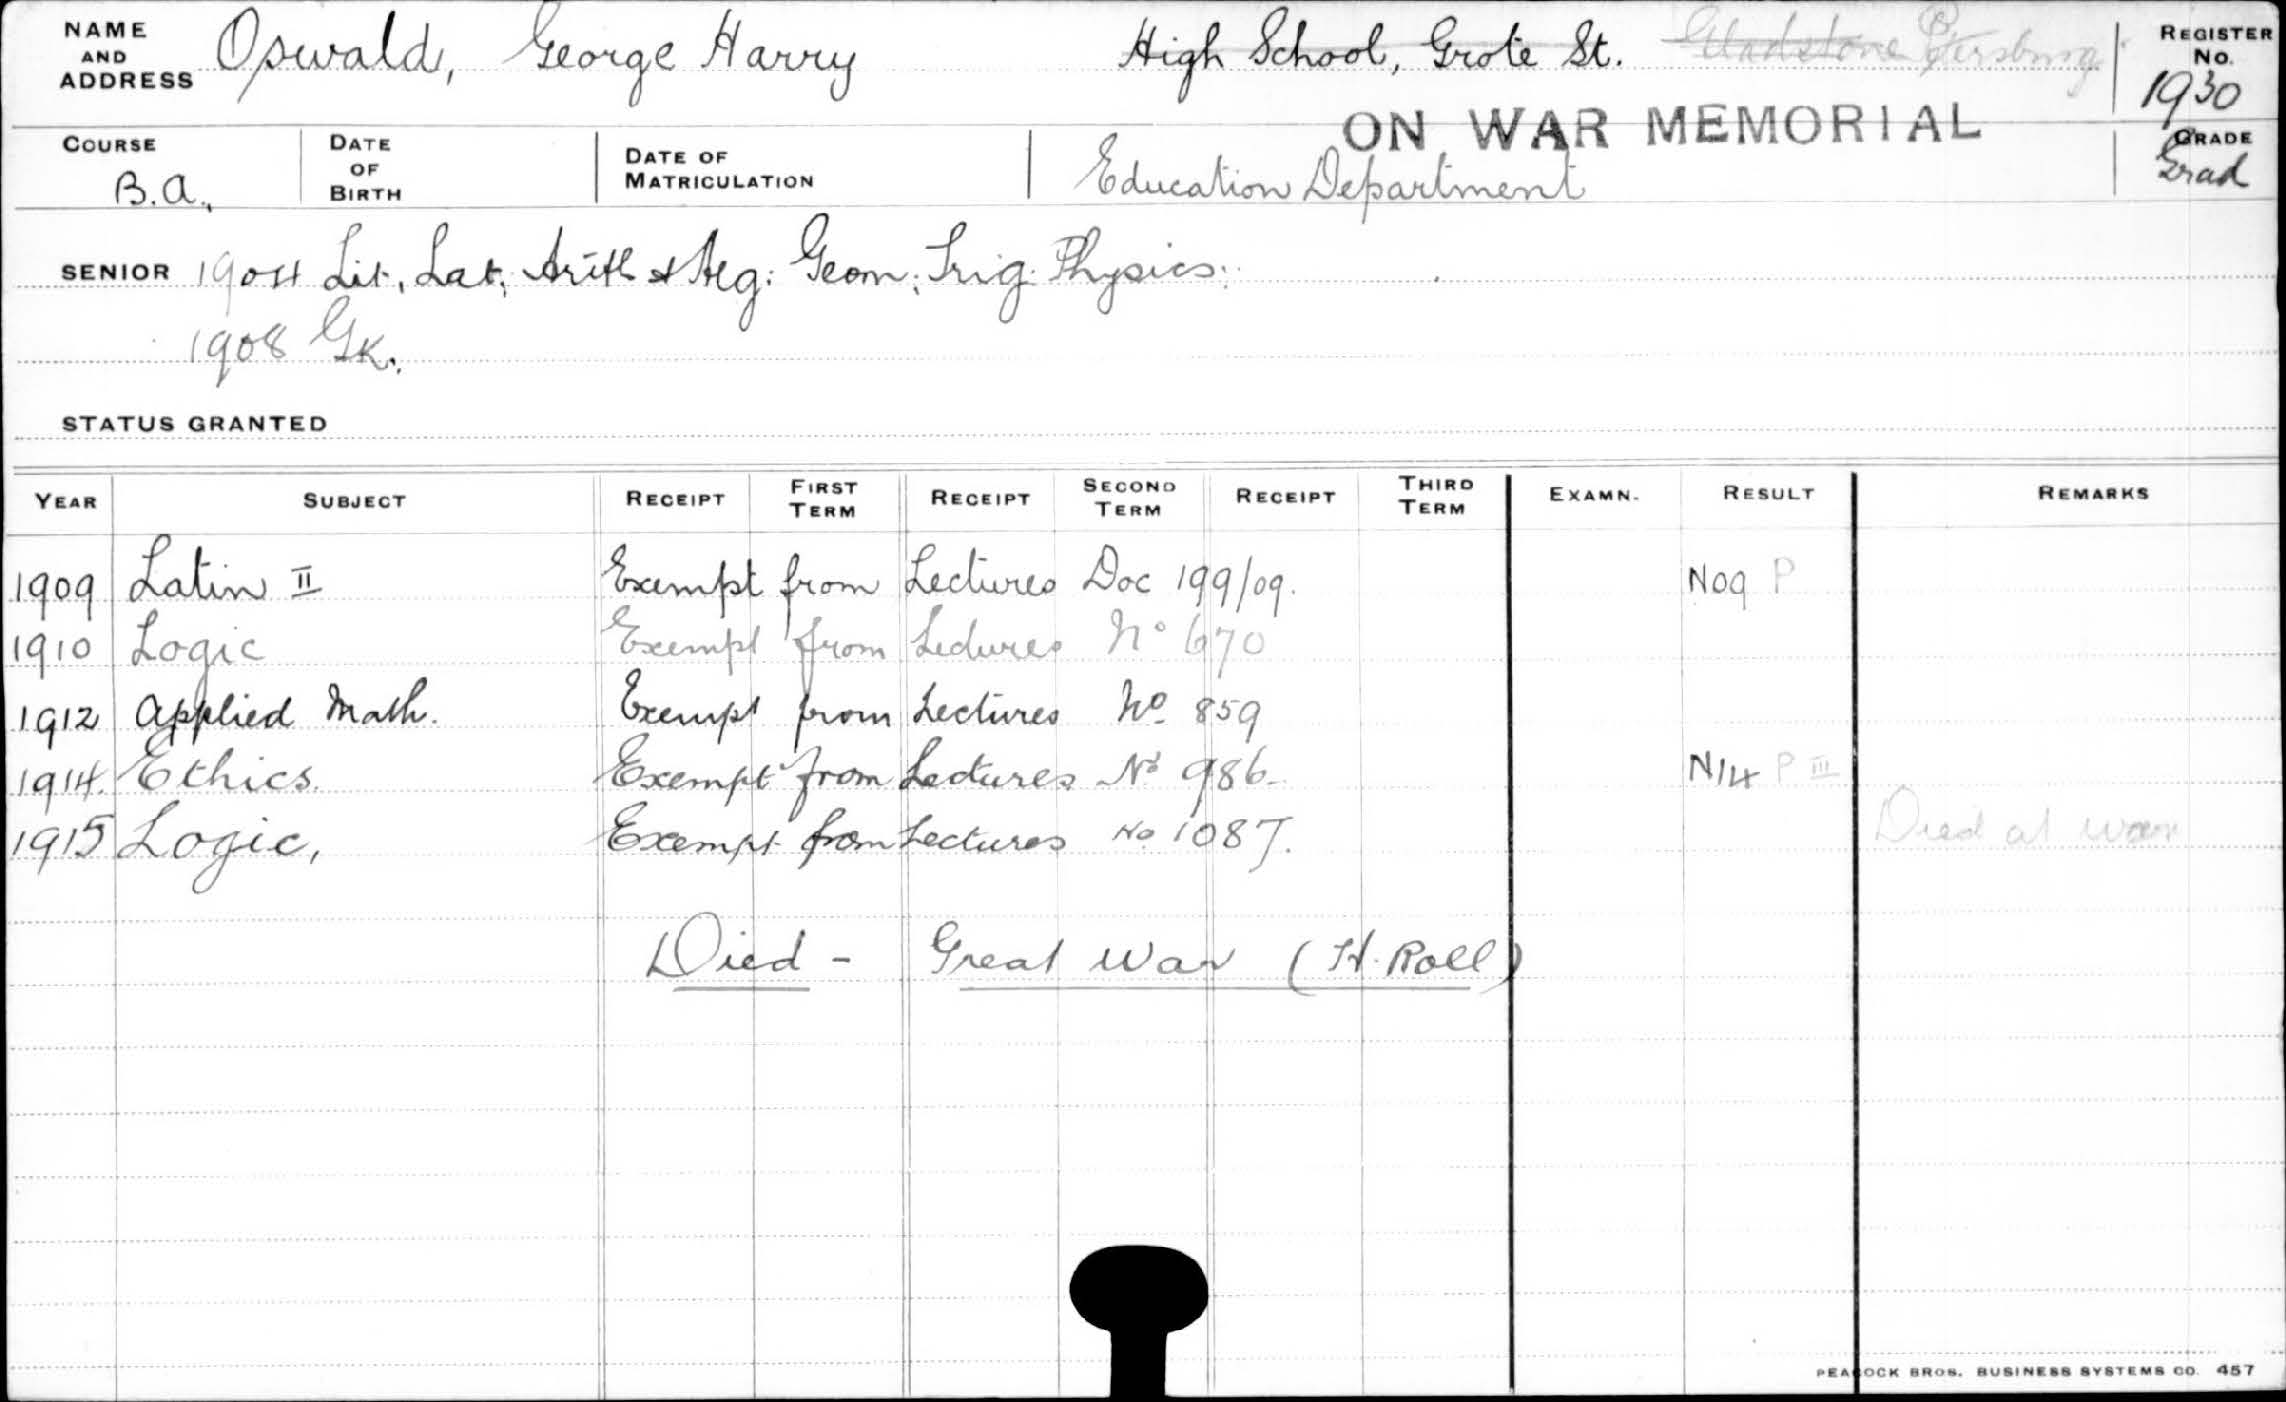 NAME AND ADDRESS Oswald, George Harry High School, Grote St. Gladstone Petersburg REGISTER No. 1930
ON WAR MEMORIAL
COURSE B.A., DATE OF BIRTH DATE OF MATRICULATION Education Department GRADE Grad
SENIOR 1904 Lit, Lat; Arith & Alg: Geom; Trig: Physics:
1908 Gk.
STATUS GRANTED
YEAR SUBJECT RECEIPT FIRST TERM RECEIPT SECOND TERM RECEIPT THIRD TERM EXAMN. RESULT REMARKS
1909 Latin II Exempt from Lectures Doc 199/09. N09 P
1910 Logic Exempt from Lectures No 670
1912 Applied Math. Exempt from Lectures No. 859
1914. Ethics. Exempt from Lectures No 986 N14 P III
1915 Logic, Exempt from Lectures No 1087. Died at war
Died - Great War (H. Roll)
PEACOCK BROS. BUSINESS SYSTEMS CO. 457